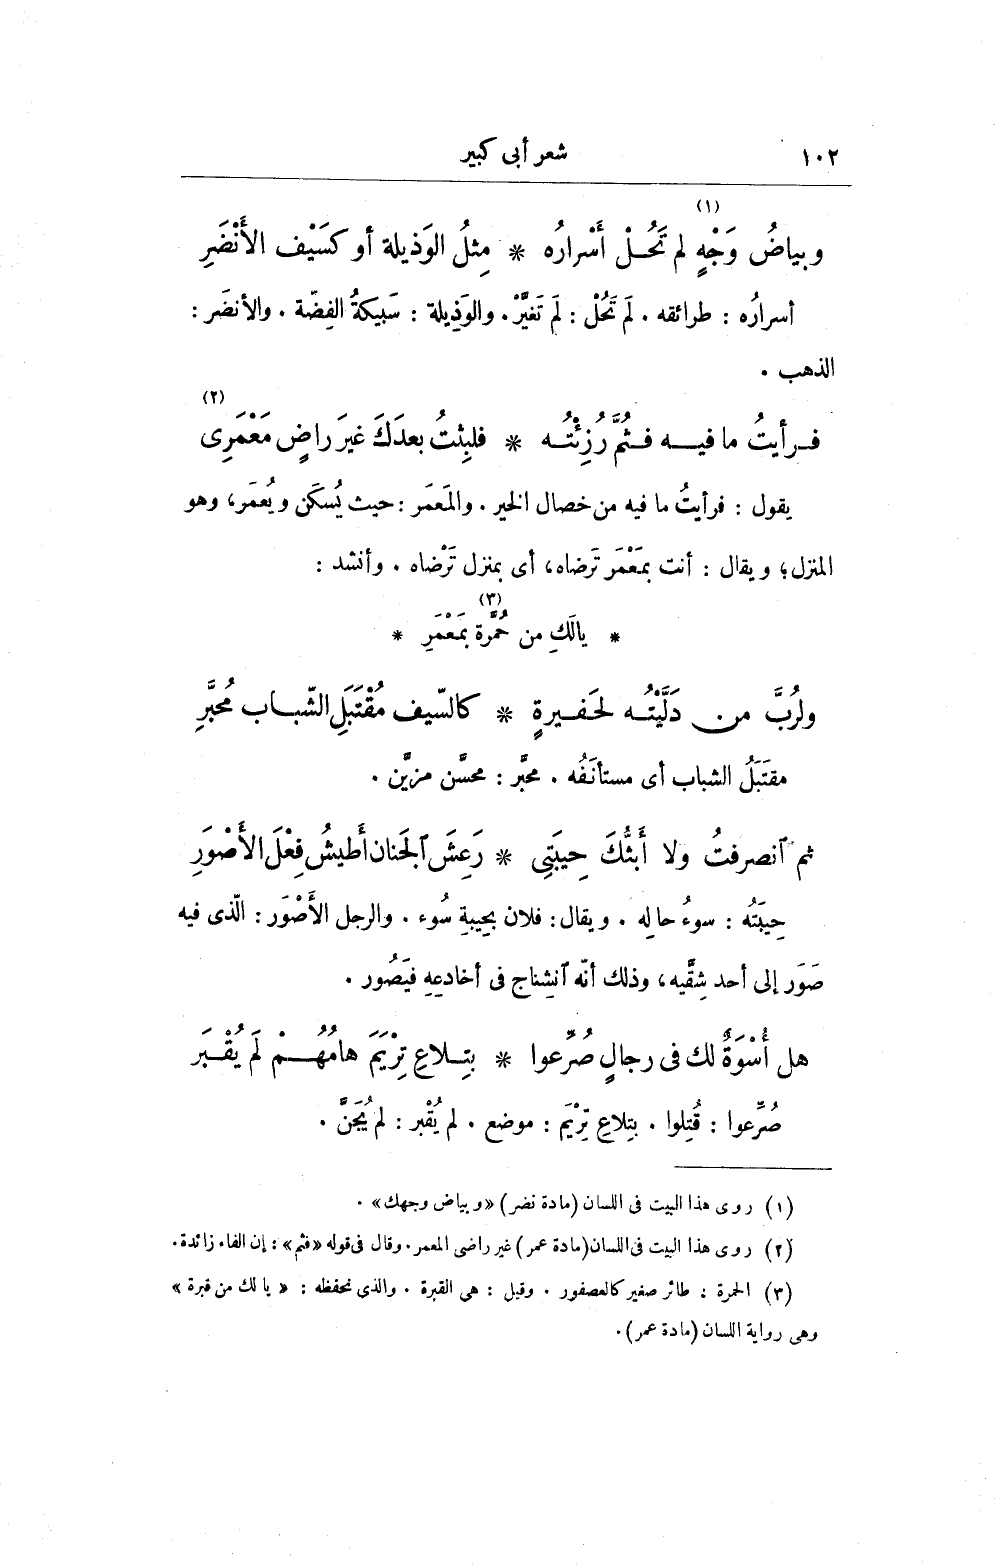 ١٠٢ شعر أبى كبير
(١)
وبياضُ وَجْهٍ لم تَحُـلْ أَسْرارُه * مِثلُ الوَذيلة أو كسَيْف الأَنْضَرِ
أسرارُه : طرائقه . لَم تَحُلْ : لَم تَغيَّرْ . والوَذِيلة : سَبيكةُ الفِضّة . والأنضَر :
الذهب .
(٢)
فـرأيتُ ما فيـــه فـثُمَّ رُزِئْتُـه * فلبِثتُ بعدَكَ غيرَ راضٍ مَعْمَرِى
يقول : فرأيتُ ما فيه من خصال الخير . والمَعمَر : حيث يُسكَن ويُعمَر، وهو
المنزل؛ ويقال : أنت بمَعْمَر تَرضاه، أى بمنزل تَرْضاه . وأنشد :
(٣)
* يالَكِ من حُمَّرة بمَعْمَرِ *
ولرُبَّ من دَلَّيْتُـه لحَفـيرةٍ * كالسّيف مُقْتَبَلِ الشّبـاب مُحبَّرِ
مقتَبَلُ الشباب أى مستأنَفُه . محبَّر : محسَّن مزيَّن .
ثم ٱنصرفتُ ولا أَبثُّكَ حِيبَتِي * رَعِشَ ٱلجَنان أَطيشُ فِعْلَ الأَصْوَرِ
حِيبَتُه : سوءُ حاله . ويقال : فلان بحِيبةِ سُوء . والرجل الأَصْوَر : الّذى فيه
صَوَر إلى أحد شِقَّيه، وذلك أنّه ٱنشِناج فى أخادعِهِ فيَصُور .
هل أُسْوَةٌ لك فى رجالٍ صُرِّعوا * بتِـلاعِ تِرْيَمَ هامُهُـــمْ لَم يُقْـبَر
صُرِّعوا : قُتِلوا . بتِلاعِ تِرْيَم : موضع . لم يُقْبر : لم يُجَنَّ .
(١) روى هذا البيت فى اللسان (مادة نضر) «وبياض وجهك» .
(٢) روى هذا البيت فى اللسان (مادة عمر) غير راضى المعمر . وقال فى قوله «فثم» : إن الفاء زائدة .
(٣) الحمرة : طائر صغير كالعصفور . وقيل : هى القبرة . والذى نحفظه : «يا لك من قبرة»
وهى رواية اللسان (مادة عمر) .